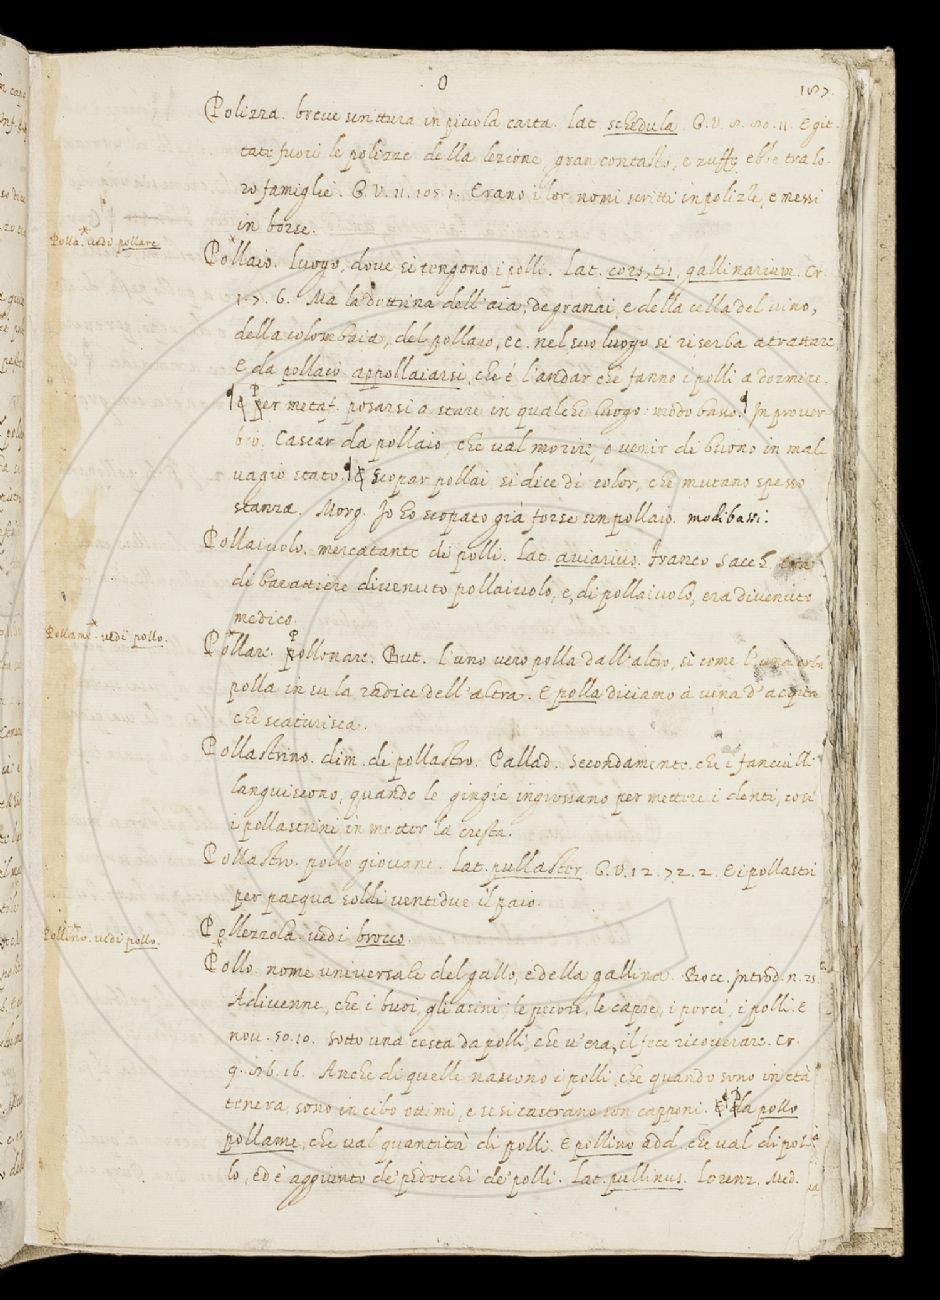 O
187.
Polizza. breve scrittura in picciola carta. lat. schedula. G. V. 8. 80. 11. E git-
tate fuori le polizze della lezione, gran contasto, e zuffa ebbe tra lo-
ro famiglie. G. V. 11. 105. 1. Erano i lor nomi scritti in polizze, e messi
in borse.
Polla. vedi pollare.
Pollaio. luogo, dove si tengono i polli. Lat. cors, tis, gallinarium. Cr.
1. 7. 6. Ma la dottrina dell'aia, de granai, e della cella del vino,
della colombaia, del pollaio, ec. nel suo luogo si riserba a trattare
E da pollaio appollaiarsi, che é l'andar che fanno i polli a dormire.
per metaf. posarsi a stare in qualche luogo: modo basso. In prover-
bio. Cascar da pollaio, che val morire, o venir di buono in mal-
vagio stato. Scopar pollai si dice di color, che mutano spesso
stanza. Morg. Io ho scopato già forse un pollaio. modi bassi.
Pollaiuolo. mercatante di polli. Lat. aviarius. Franco Sacch. Era
di barattiere divenuto pollaiuolo, e di pollaiuolo, era divenuto
medico.
Pollame. vedi pollo.
Pollare. pollonare. But. L'uno vero polla dall'altro, sì come l'una
polla in su la radice dell'altra. E polla diciamo à vena d'acqua
che scaturisca.
Pollastrino. dim. di pollastro. Pallad. Secondamente che i fanciulli
languiscono, quando le gingíe ingrossano per mettere i denti, così
i pollastrini in metter la cresta.
Pollastro. pollo giovane. Lat. pullaster. G. V. 12. 72. 2. E i pollastri
per pasqua soldi ventidue il paio.
Pollezzola. vedi brocco.
Pollino. vedi pollo.
Pollo. nome universale del gallo, e della gallina. Bocc. Introd. n. 25.
Adivenne, che i buoi, gli asini, le pecore, le capre, i porci, i polli. E
nov. 50. 10. sotto una cesta da polli, che v'era, il fece ricoverare. Cr.
9. 86. 16. Anche di quelle nascono i polli, che quando sono in età
tenera, sono in cibo ottimi, e se si castrano son capponi. Da pollo
pollame, che val quantità di polli. E pollino add. che val di pol-
lo, ed è aggiunto de' pidocchi de' polli. Lat. pullinus. Lorenz. Med.